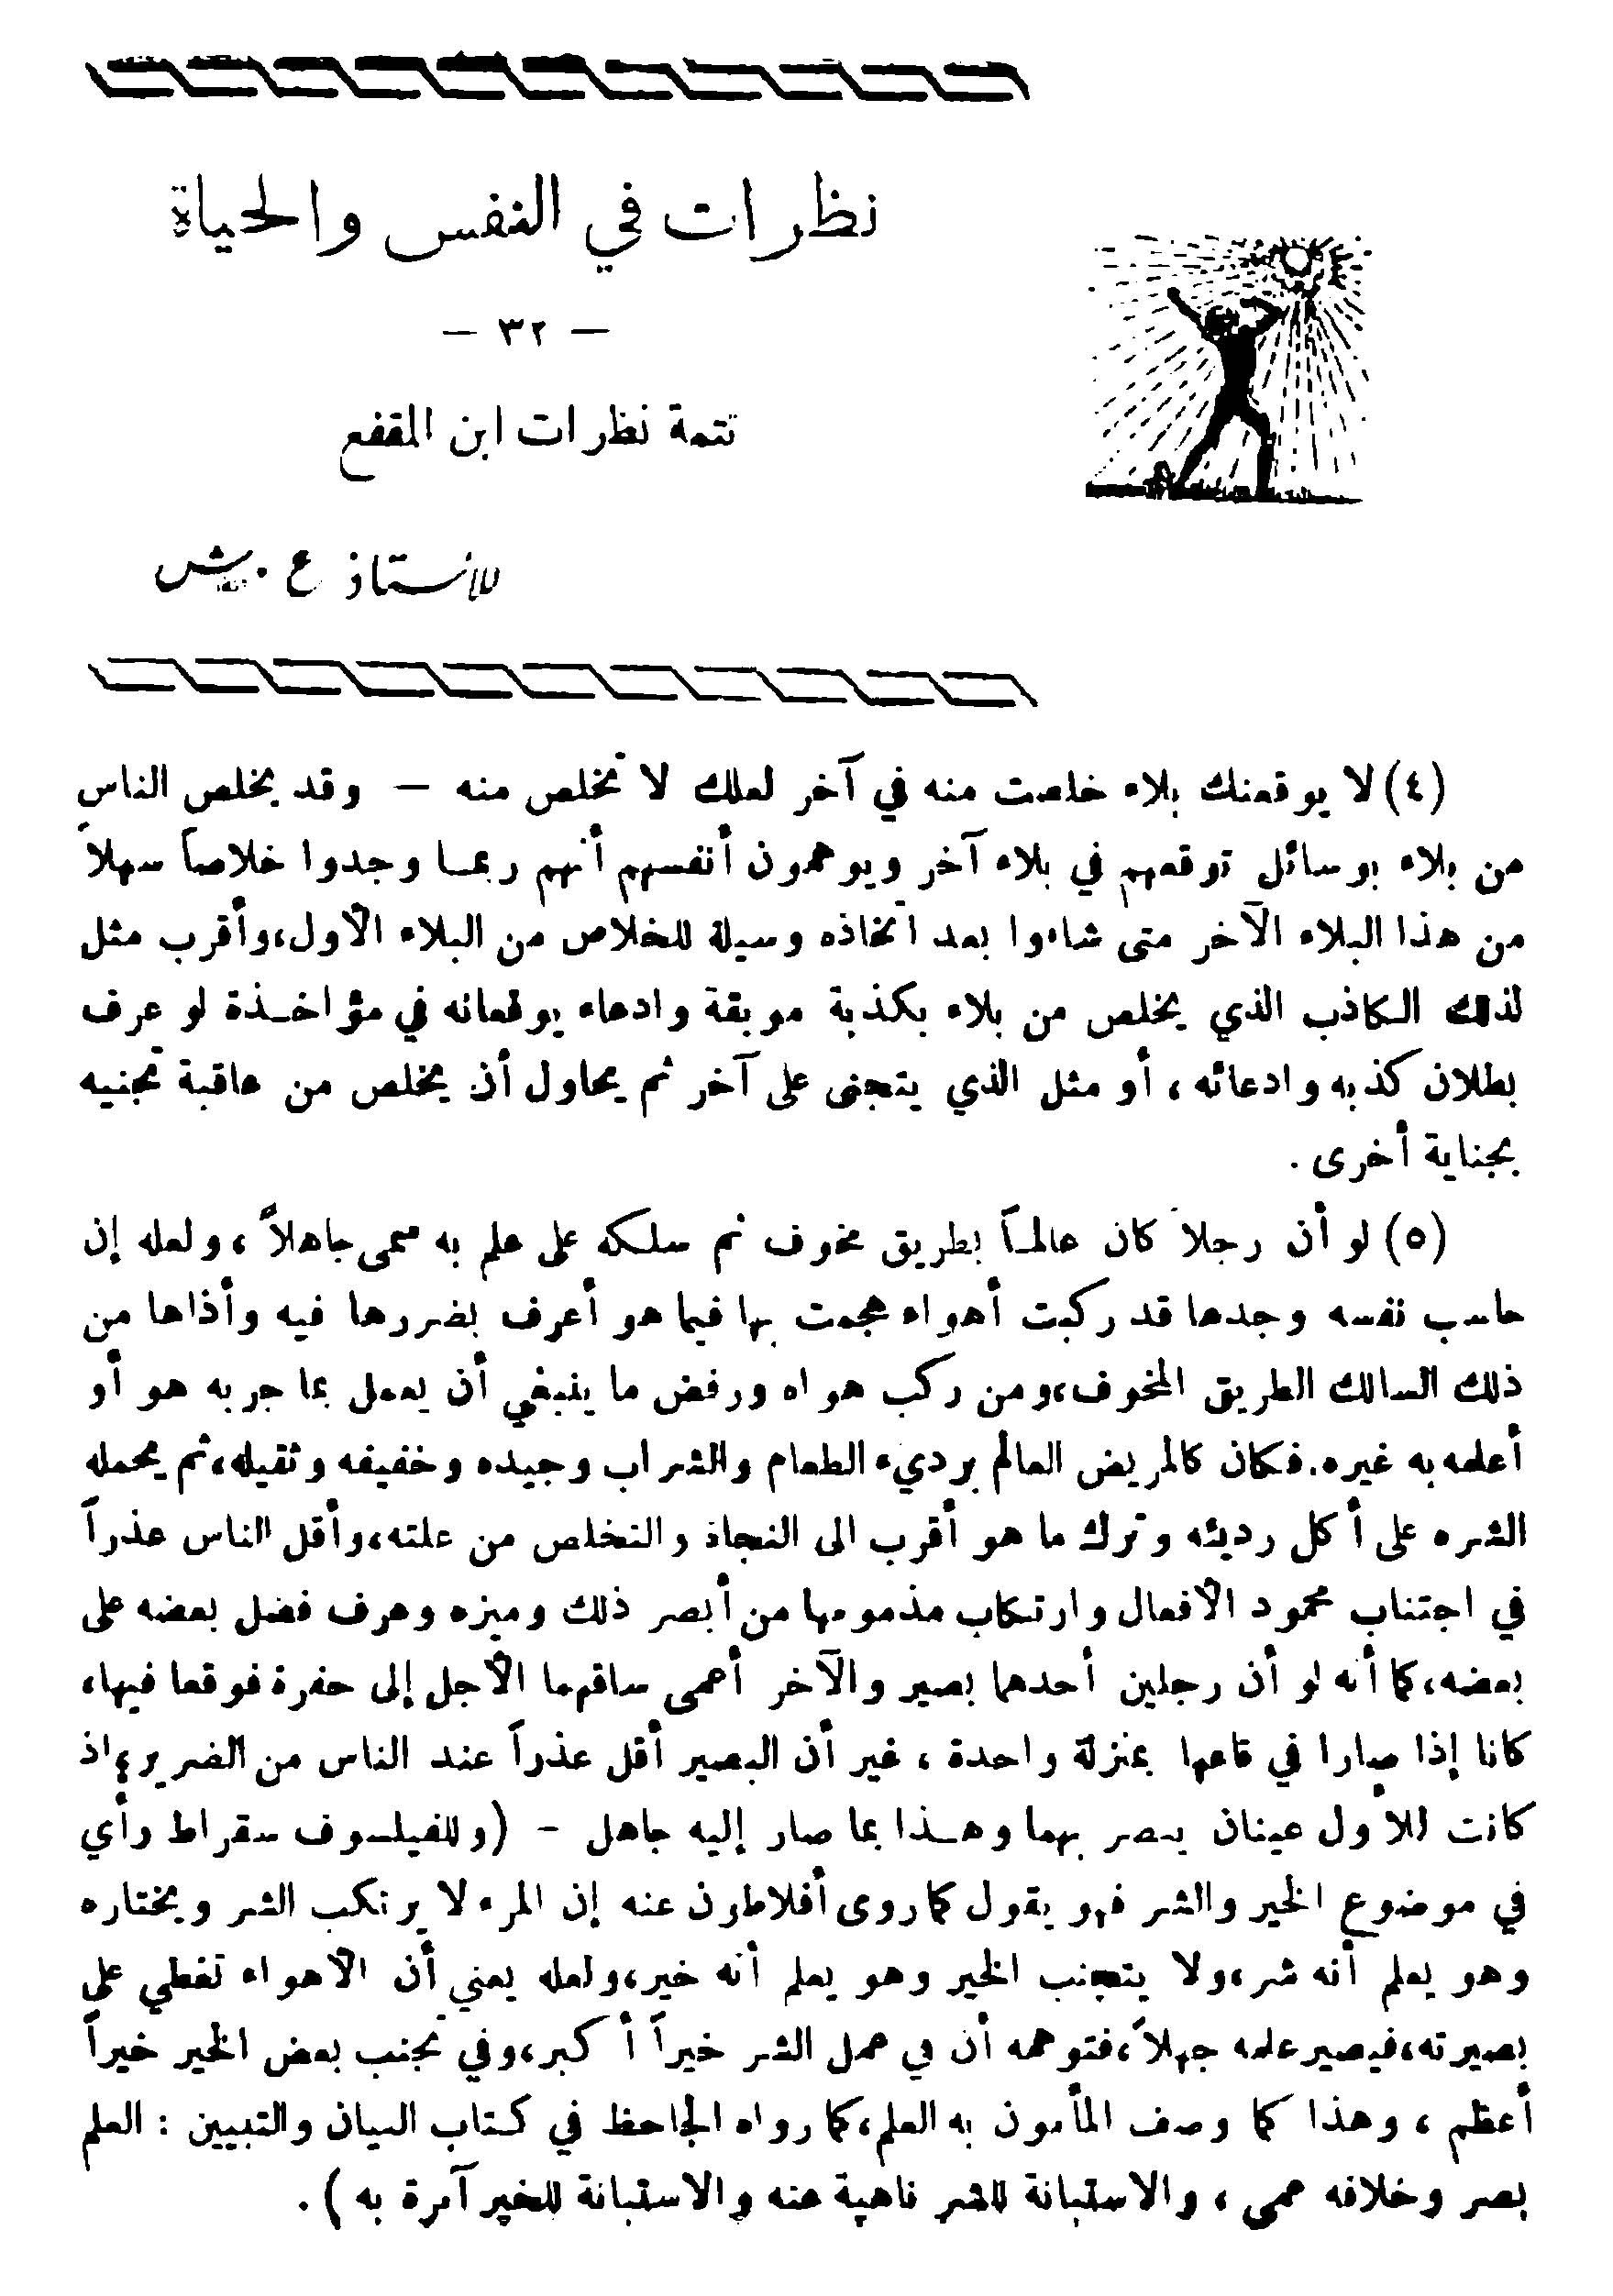 نظرات في النفس والحياة
— ٣٢ —
تتمة نظرات ابن المقفع
للأستاذ ع . ش
(٤) لا يوقعنك بلاء خلصت منه في آخر لعلك لا تخلص منه — وقد يخلص الناس
من بلاء بوسائل توقعهم في بلاء آخر ويوهمون أنفسهم أنهم ربما وجدوا خلاصاً سهلاً
من هذا البلاء الآخر متى شاءوا بعد اتخاذه وسيلة للخلاص من البلاء الأول،وأقرب مثل
لذلك الكاذب الذي يخلص من بلاء بكذبة موبقة وادعاء يوقعانه في مؤاخذة لو عرف
بطلان كذبه وادعائه ، أو مثل الذي يتجنى على آخر ثم يحاول أن يخلص من عاقبة تجنيه
بجناية أخرى .
(٥) لو أن رجلاً كان عالماً بطريق مخوف ثم سلكه على علم به سمى جاهلاً ، ولعله إن
حاسب نفسه وجدها قد ركبت أهواء هجمت بها فيما هو أعرف بضررها فيه وأذاها من
ذلك السالك الطريق المخوف،ومن ركب هواه ورفض ما ينبغي أن يعمل بما جربه هو أو
أعلمه به غيره.فكان كالمريض العالم برديء الطعام والشراب وجيده وخفيفه وثقيله،ثم يحمله
الشره على أكل رديئه وترك ما هو أقرب الى النجاة والتخلص من علته،وأقل الناس عذراً
في اجتناب محمود الأفعال وارتكاب مذمومها من أبصر ذلك وميزه وعرف فضل بعضه على
بعضه،كما أنه لو أن رجلين أحدهما بصير والآخر أعمى ساقهما الأجل إلى حفرة فوقعا فيها،
كانا إذا صارا في قاعها بمنزلة واحدة ، غير أن البصير أقل عذراً عند الناس من الضرير،إذ
كانت للأول عينان يبصر بهما وهذا بما صار إليه جاهل - (وللفيلسوف سقراط رأي
في موضوع الخير والشر فهو يقول كما روى أفلاطون عنه إن المرء لا يرتكب الشر ويختاره
وهو يعلم أنه شر،ولا يتجنب الخير وهو يعلم أنه خير،ولعله يعني أن الأهواء تغطي على
بصيرته،فيصير علمه جهلاً،فتوهمه أن في عمل الشر خيراً أكبر،وفي تجنب بعض الخير خيراً
أعظم ، وهذا كما وصف المأمون به العلم،كما رواه الجاحظ في كتاب البيان والتبيين : العلم
بصر وخلافه عمى ، والاستبانة للشر ناهية عنه والاستبانة للخير آمرة به ) .